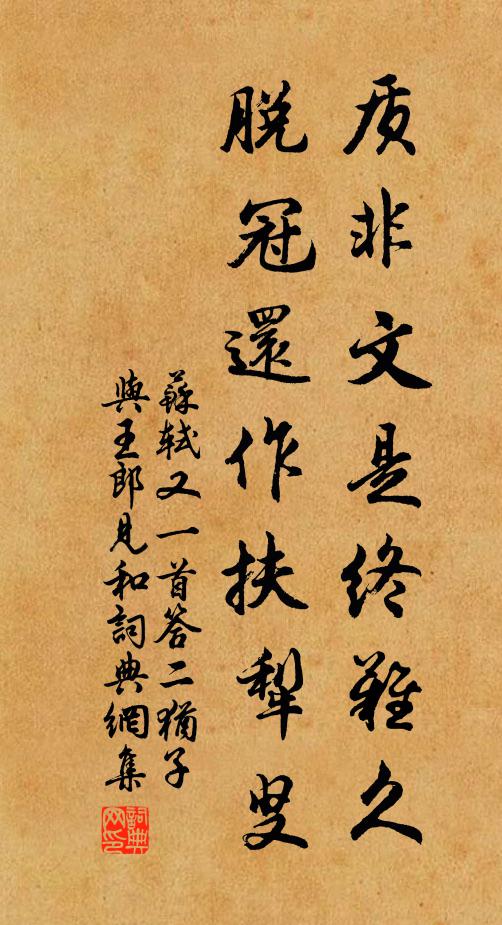 质非文是终难久
脱冠還作扶犁叟
蘇轼又一首答二猶子
與王郎見和詞典網集
詞典
网印